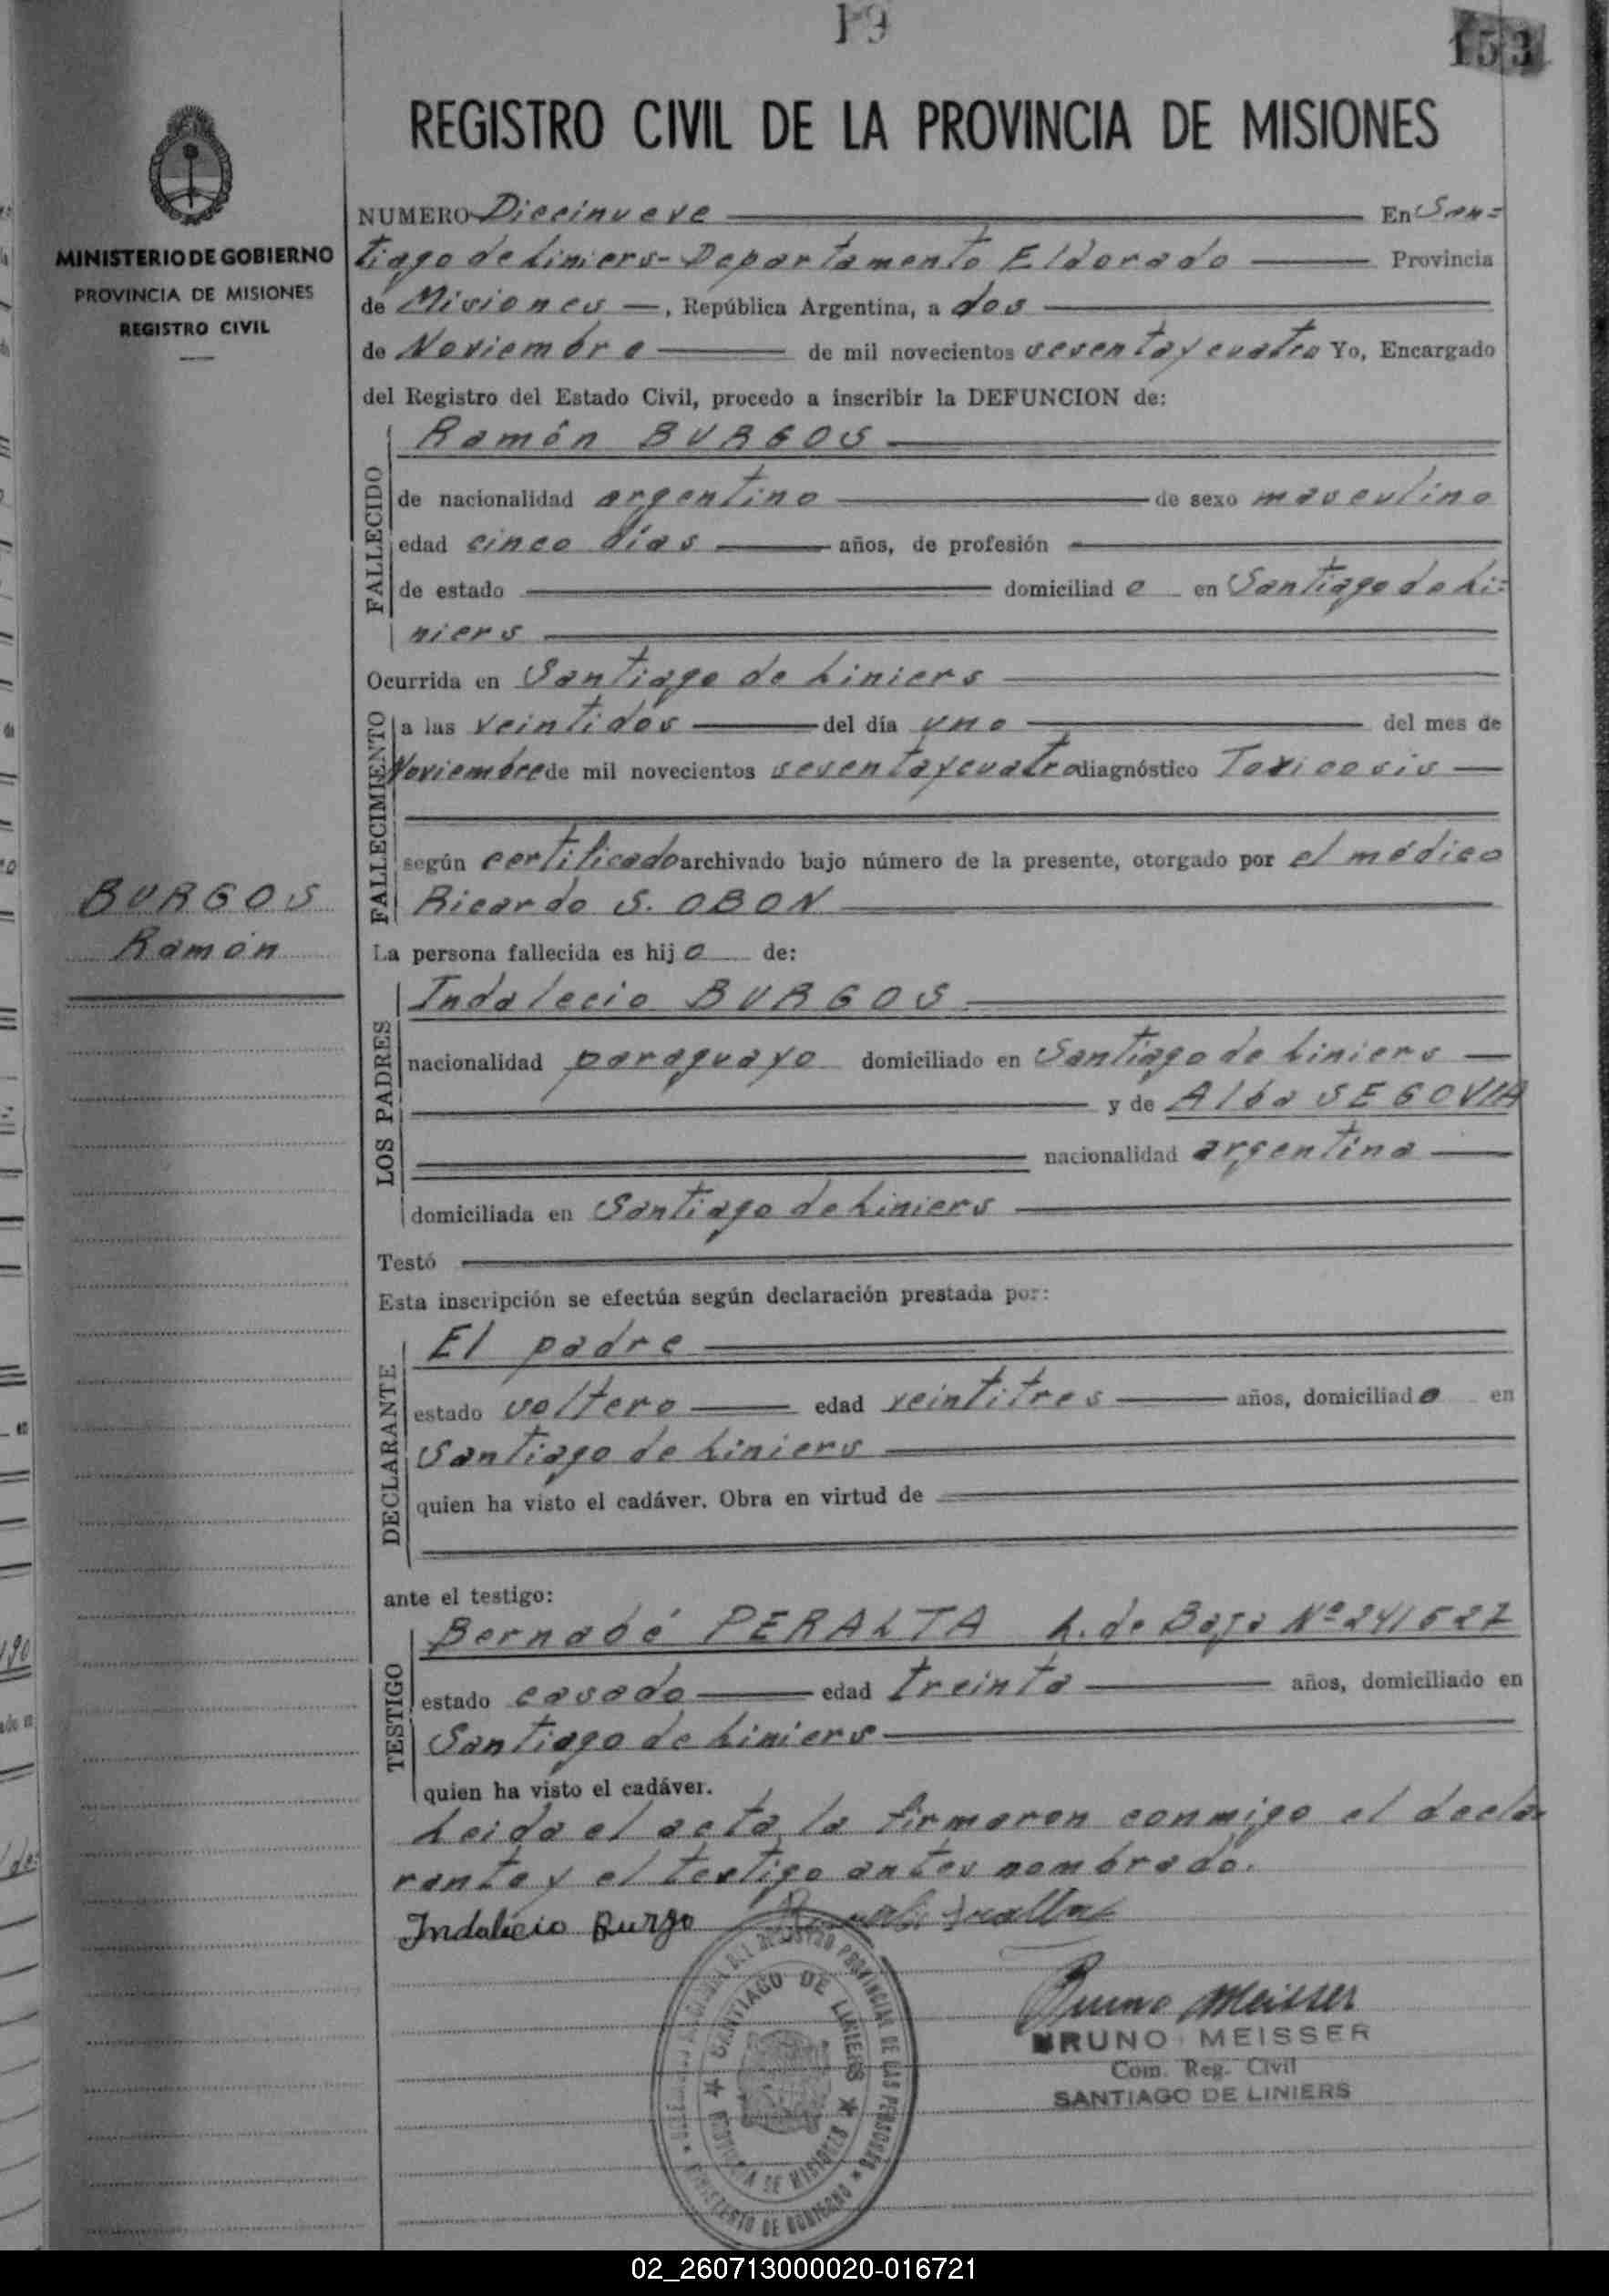 19
153
REGISTRO CIVIL DE LA PROVINCIA DE MISIONES
MINISTERIO DE GOBIERNO
PROVINCIA DE MISIONES
REGISTRO CIVIL
NUMERO Diecinueve En San=
tiago de Liniers - Departamento Eldorado Provincia
de Misiones —, República Argentina, a dos
de Noviembre de mil novecientos sesenta y cuatro Yo, Encargado
del Registro del Estado Civil, procedo a inscribir la DEFUNCION de:
FALLECIDO
Ramón BURGOS
de nacionalidad argentino de sexo masculino
edad cinco días años, de profesión
de estado domiciliado en Santiago de Li=
niers
Ocurrida en Santiago de Liniers
FALLECIMIENTO
a las veintidos del día uno del mes de
Noviembre de mil novecientos sesenta y cuatro diagnóstico Toxicosis
según certificado archivado bajo número de la presente, otorgado por el médico
Ricardo S. OBON
BURGOS
Ramón
La persona fallecida es hijo de:
LOS PADRES
Indalecio BURGOS
nacionalidad paraguayo domiciliado en Santiago de Liniers
y de Alba SEGOVIA
nacionalidad argentina
domiciliada en Santiago de Liniers
Testó
Esta inscripción se efectúa según declaración prestada por:
DECLARANTE
El padre
estado soltero edad veintitres años, domiciliado en
Santiago de Liniers
quien ha visto el cadáver. Obra en virtud de
ante el testigo:
TESTIGO
Bernabé PERALTA L. de Baja Nº 241527
estado casado edad treinta años, domiciliado en
Santiago de Liniers
quien ha visto el cadáver.
Leida el acta, la firmaron conmigo el decla
rante y el testigo antes nombrado.
Indalecio Burgo
Bruno Meisser
BRUNO MEISSER
Com. Reg. Civil
SANTIAGO DE LINIERS
REGISTRO PROVINCIAL DE LAS PERSONAS
MINISTERIO DE GOBIERNO
SANTIAGO DE LINIERS
PROVINCIA DE MISIONES
02_260713000020-016721